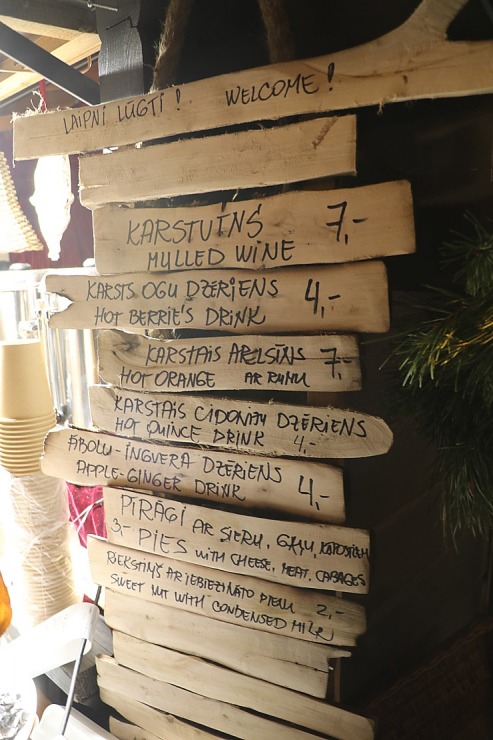 LAIPNI LŪGTI! WELCOME!
KARSTVĪNS 7,-
MULLED WINE
KARSTS OGU DZĒRIENS 4,-
HOT BERRIE'S DRINK
KARSTAIS APELSĪNS 7,-
HOT ORANGE AR RUMU
KARSTAIS CIDONIJU DZĒRIENS
HOT QUINCE DRINK 4,-
ĀBOLU-INGVERA DZĒRIENS
APPLE-GINGER DRINK 4,-
PĪRĀGI AR SIERU, GAĻU, KĀPOSTIEM
3,- PIES WITH CHEESE, MEAT, CABAGES
RIEKSTIŅŠ AR IEBIEZINĀTO PIENU 2,-
SWEET NUT WITH CONDENSED MILK